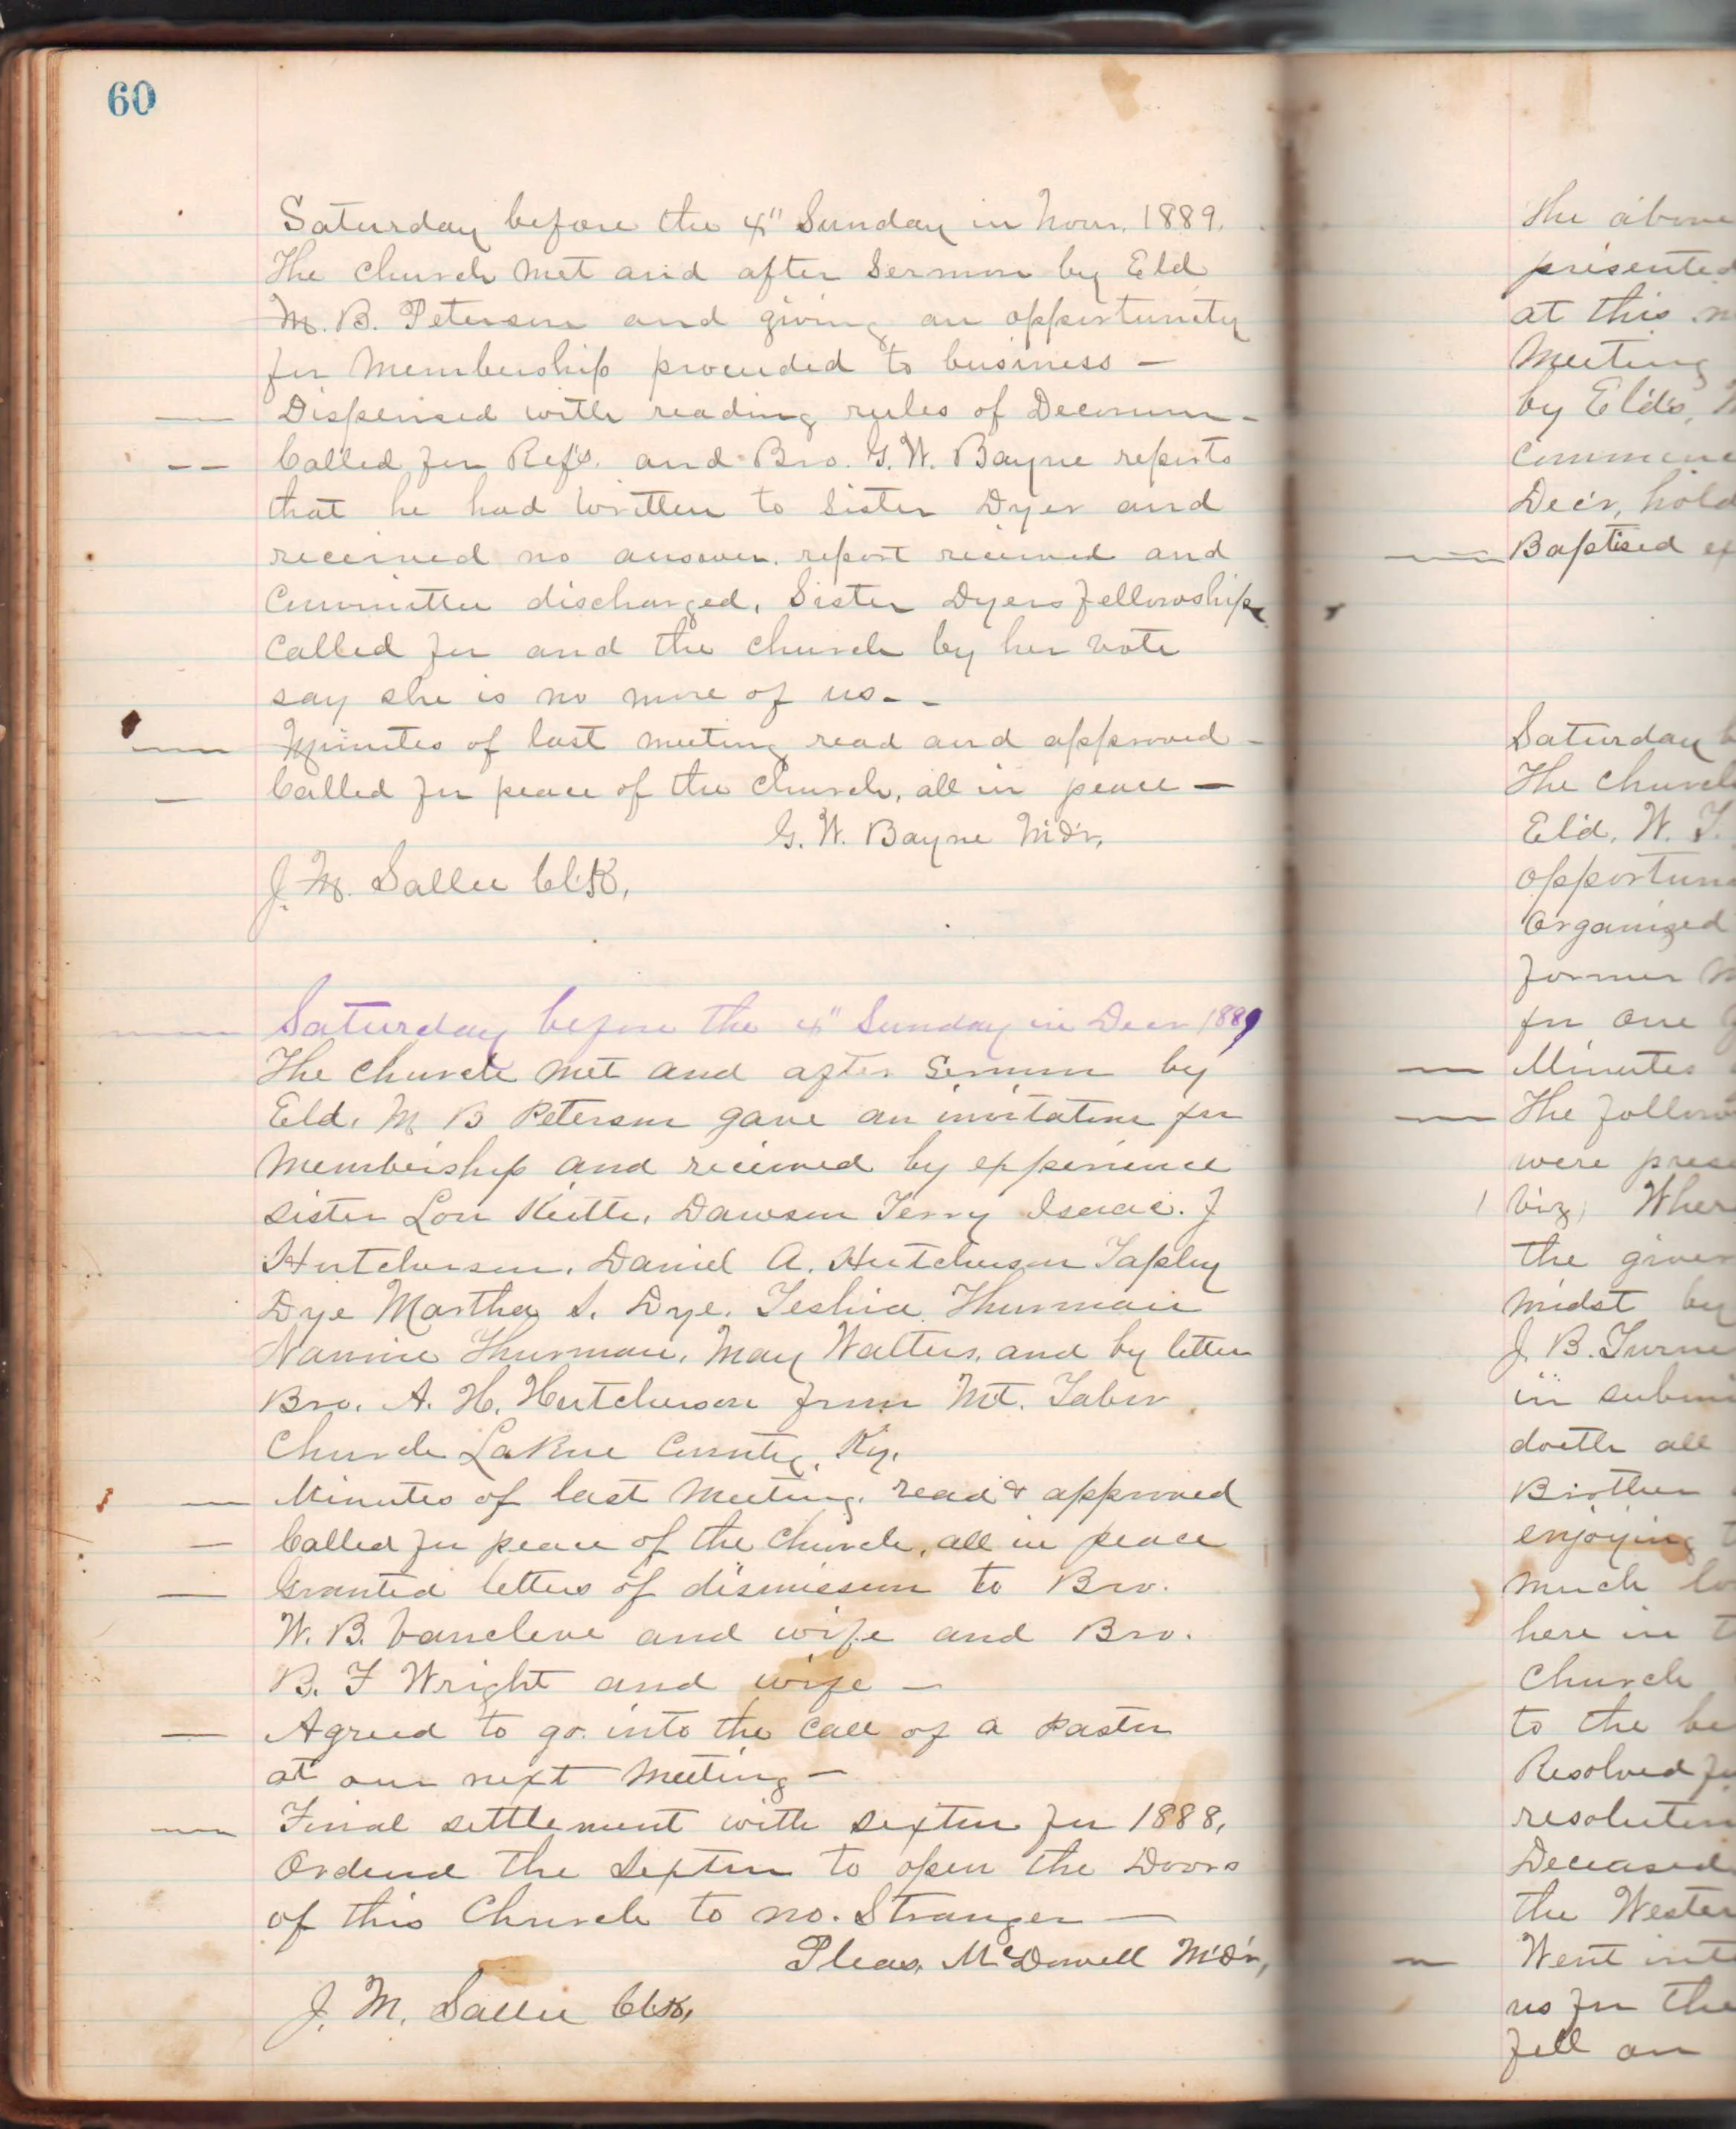 60
Saturday before the 4" Sunday in Novr. 1889.
The church met and after Sermon by Eld
M. B. Peterson and giving an opportunity
for Membership proceeded to business —
— Dispensed with reading rules of Decorum –
— Called for Refs. and Bro. G. W. Bayne reports
that he had written to Sister Dyer and
received no answer. report received and
Committee discharged, Sister Dyers fellowship
Called for and the church by her vote
say she is no more of us - -
— Minutes of last meeting read and approved –
— Called for peace of the Church, all in peace —
G. W. Bayne Mdr,
J. M. Sallee Clk,
— Saturday before the 4" Sunday in Decr 1889
The church met and after Sermon by
Eld. M B Peterson gave an invitation for
Membership and received by experience
sister Lou Keith, Dawson Terry Isaac. J
Hutcherson, Daniel A. Hutcherson Tapley
Dye Martha S. Dye. Thurman
Nannie Thurman, May Walters, and by letter
Bro. A. H. Hutcherson from Mt. Tabor
Church LaRue County, Ky.
— Minutes of last meeting. read & approved
— Called for peace of the Church, all in peace
— Granted letters of dismission to Bro.
W. B. Vancleve and wife and Bro.
B. F Wright and wife —
— Agreed to go into the call of a Paster
at our next Meeting —
— Final settlement with sexton for 1888,
Ordered the Sexton to open the Doors
of this Church to no. Stranger —
Pleas. McDowell Mdr,
J. M. Sallee Clk,
The above
presented
at this
Meeting
by Elds,
Decr, hold
— Baptised
Saturday
The Church
Eld. W. T.
Organized
former
for one
— Minutes
— The
were
viz, Wher
the giver
midst by
J. B. Turne
in
doeth all
Brother
enjoying
much
here in
Church
to the
Resolved
Deceased
the Wester
— Went
us for the
fell on